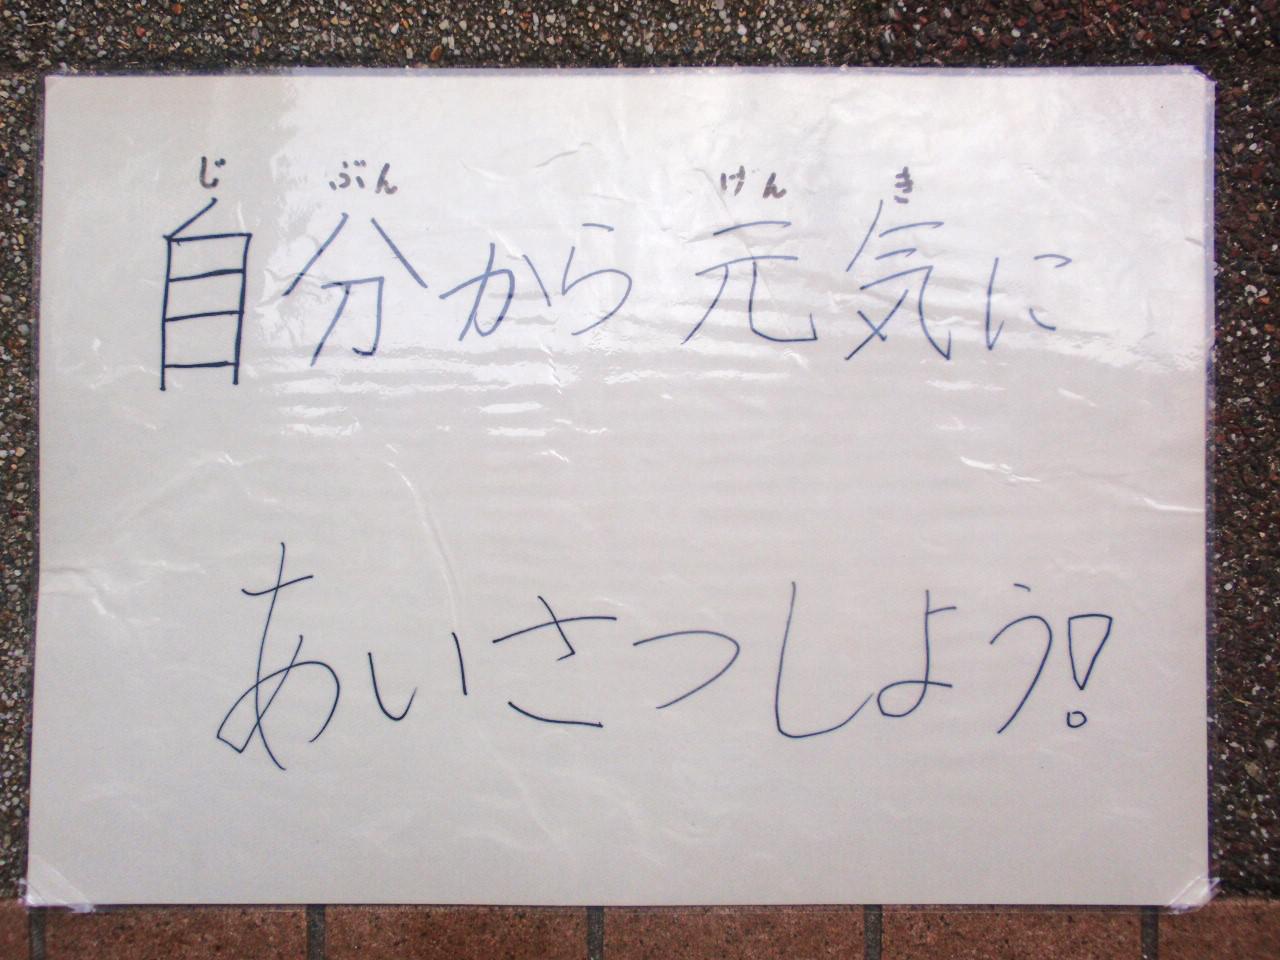 じ ぶん けん き
自分から元気に
あいさつしよう!